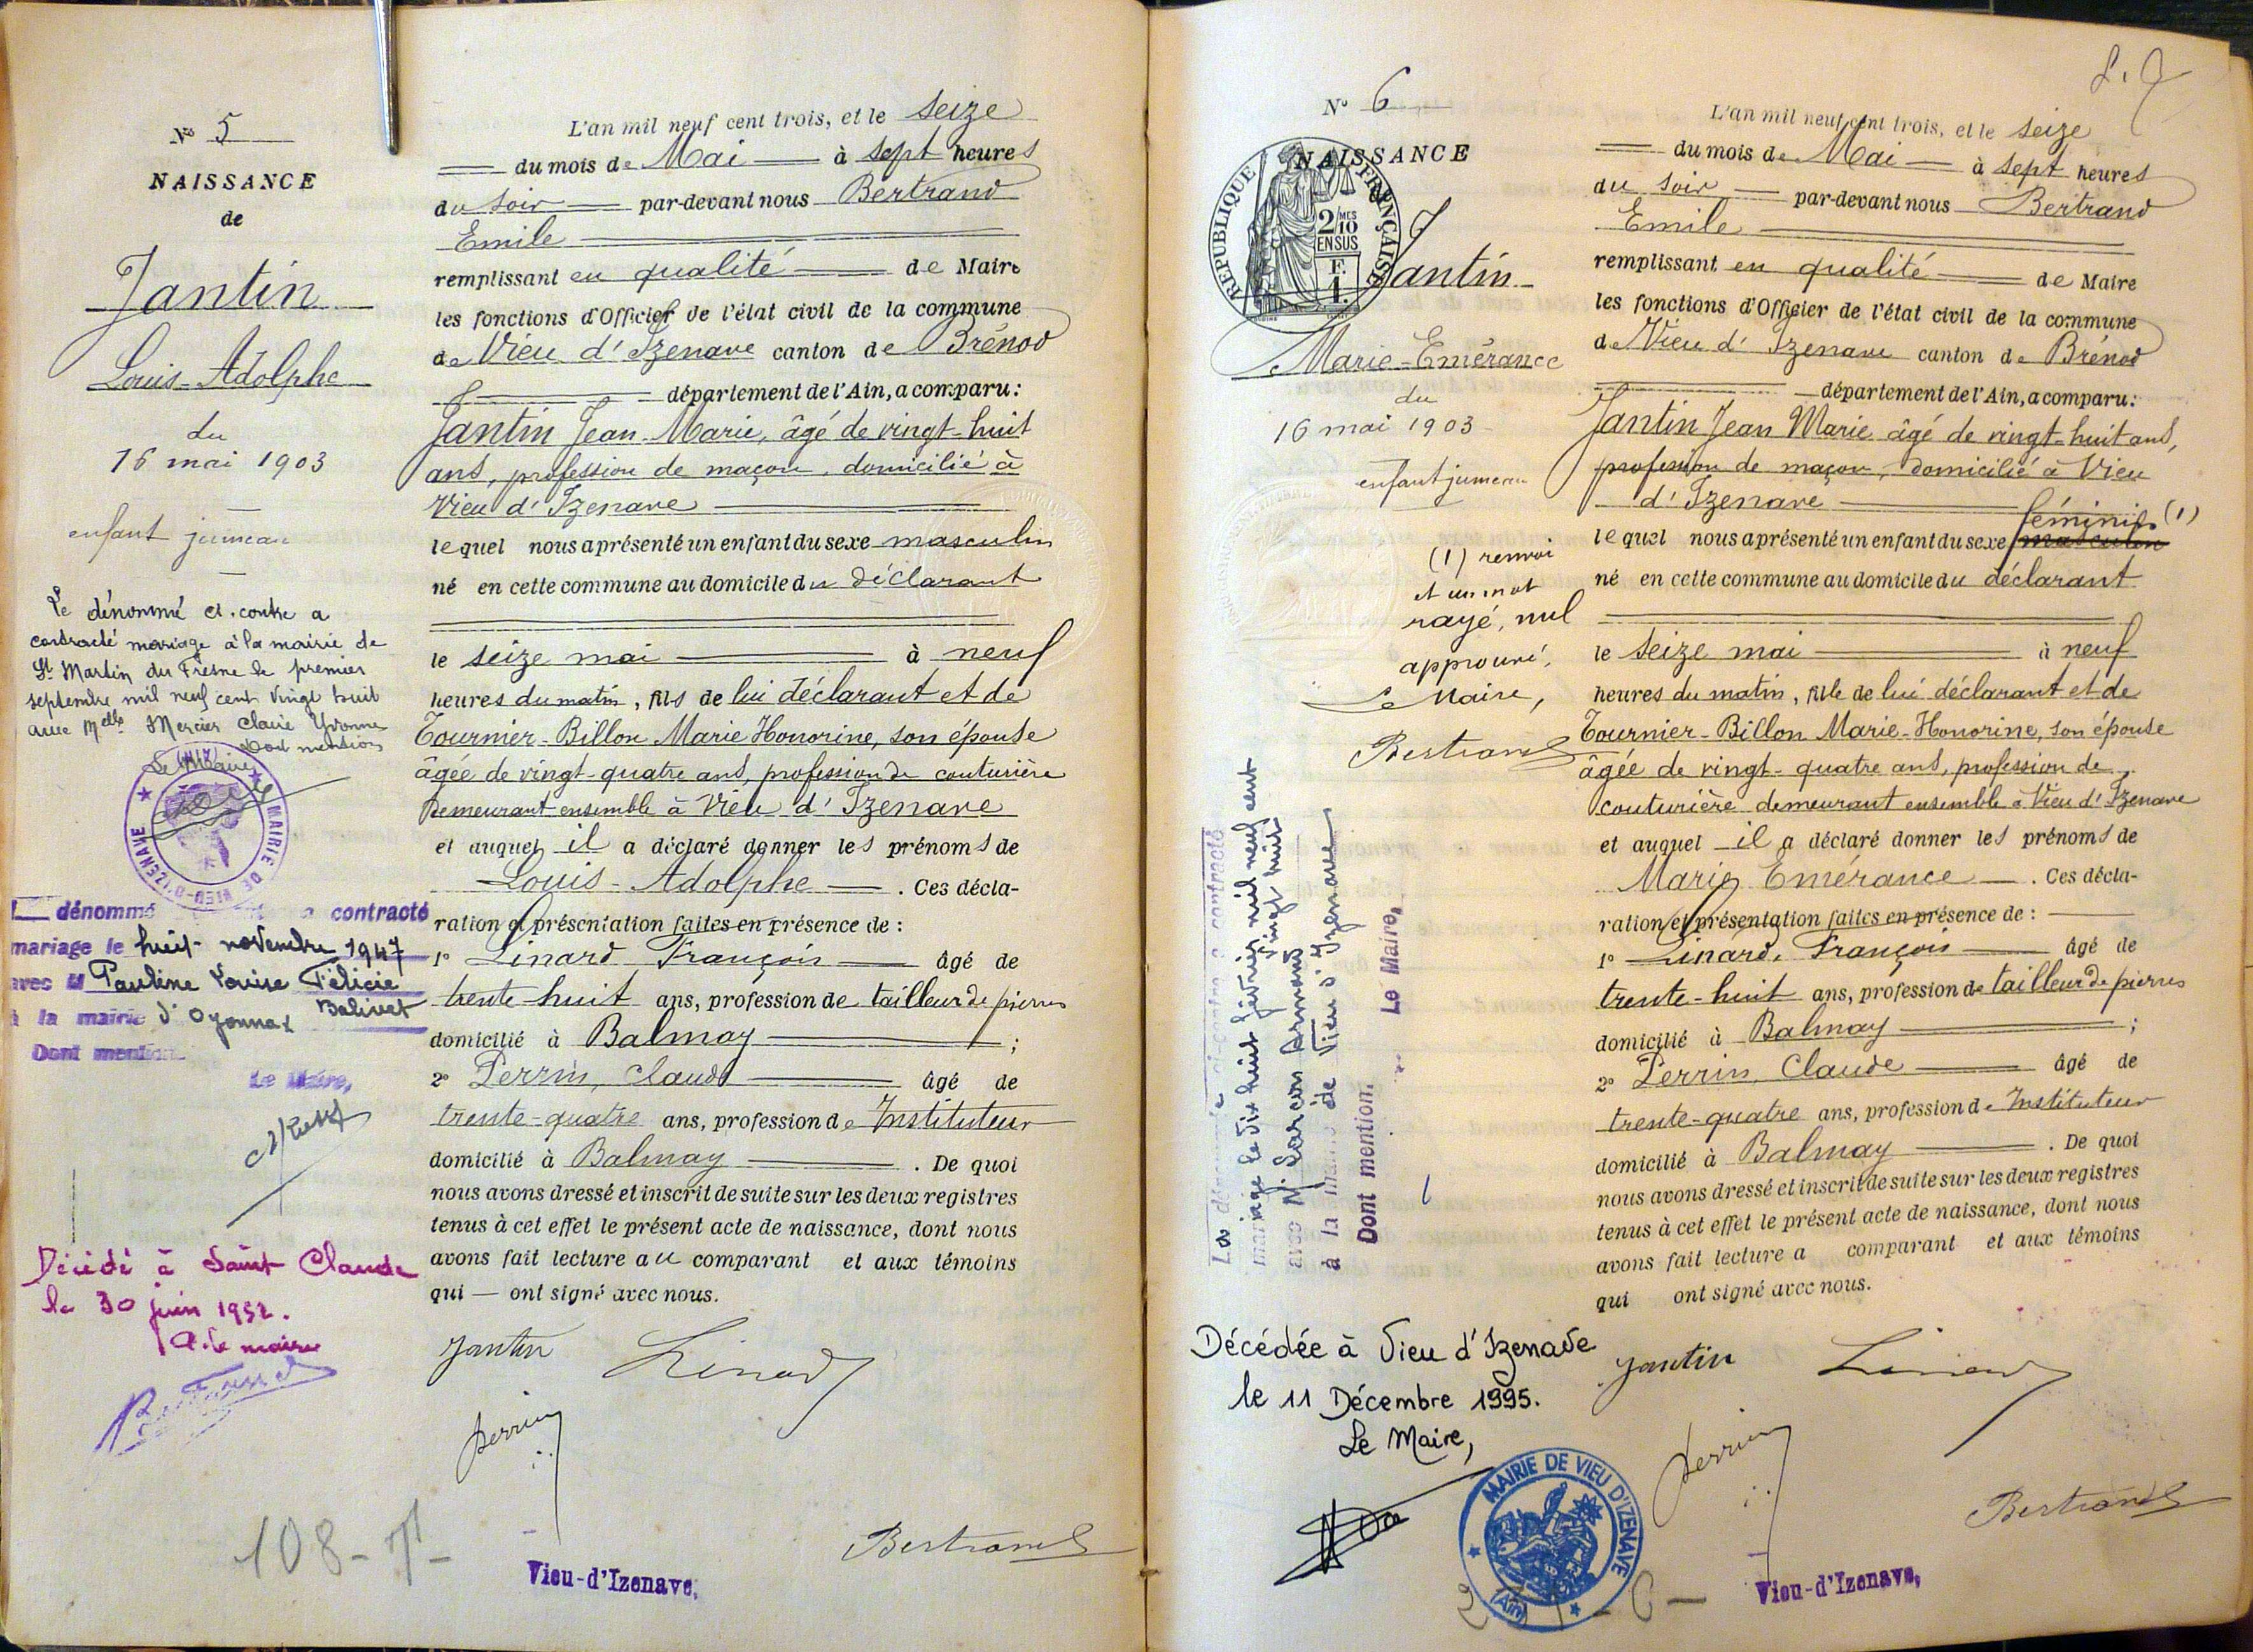 N° 5
NAISSANCE
de
Jantin
Louis-Adolphe
du
16 mai 1903
enfant jumeau
Le dénommé ci-contre a
contracté mariage à la mairie de
St Martin du Fresne le premier
septembre mil neuf cent vingt huit
avec Melle Mercier Claire Yvonne
Dont mention
Le Maire
MAIRIE DE VIEU-D'IZENAVE (AIN)
L dénommé a contracté
mariage le huit novembre 1947
avec M Pauline Louise Félicie
Balivet
à la mairie d'Oyonnax
Dont mention.
Le Maire,
Décédé à Saint Claude
le 30 juin 1952.
le maire
Bertrand
108-
L'an mil neuf cent trois, et le seize
du mois de Mai à sept heures
du soir par-devant nous Bertrand
Emile
remplissant en qualité de Maire
les fonctions d'Officier de l'état civil de la commune
de Vieu d'Izenave canton de Brénod
département de l'Ain, a comparu:
Jantin Jean Marie, âgé de vingt-huit
ans, profession de maçon, domicilié à
Vieu d'Izenave
lequel nous a présenté un enfant du sexe masculin
né en cette commune au domicile du déclarant
le seize mai à neuf
heures du matin, fils de lui déclarant et de
Tournier-Billon Marie Honorine, son épouse
âgée de vingt-quatre ans, profession de couturière
demeurant ensemble à Vieu d'Izenave
et auquel il a déclaré donner les prénoms de
Louis-Adolphe. Ces décla-
ration et présentation faites en présence de :
1° Linard François âgé de
trente-huit ans, profession de tailleur de pierres
domicilié à Balmay ;
2° Perrin, Claude âgé de
trente-quatre ans, profession de Instituteur
domicilié à Balmay. De quoi
nous avons dressé et inscrit de suite sur les deux registres
tenus à cet effet le présent acte de naissance, dont nous
avons fait lecture au comparant et aux témoins
qui — ont signé avec nous.
Jantin Linard
Perrin
Bertrand
Vieu-d'Izenave,
N° 6
NAISSANCE
de
REPUBLIQUE FRANÇAISE
2/10 MES
EN SUS
F.
1.
Jantin
Marie-Emérance
du
16 mai 1903
enfant jumeau
(1) renvoi
et un mot
rayé, nul
approuvé,
Le Maire,
Bertrand
La dénommée ci-contre a contracté
mariage le dix huit février mil neuf cent
vingt huit
avec M. Sarcon Armand
à la mairie de Vieu d'Izenave
Dont mention.
Le Maire,
Décédée à Vieu d'Izenave
le 11 Décembre 1995.
Le Maire,
MAIRIE DE VIEU D'IZENAVE
(Ain)
L'an mil neuf cent trois, et le seize
du mois de Mai à sept heures
du soir par-devant nous Bertrand
Emile
remplissant en qualité de Maire
les fonctions d'Officier de l'état civil de la commune
de Vieu d'Izenave canton de Brénod
département de l'Ain, a comparu:
Jantin Jean Marie âgé de vingt-huit ans,
profession de maçon, domicilié à Vieu
d'Izenave
féminin (1)
lequel nous a présenté un enfant du sexe masculin
né en cette commune au domicile du déclarant
le seize mai à neuf
heures du matin, fille de lui déclarant et de
Tournier-Billon Marie-Honorine, son épouse
âgée de vingt-quatre ans, profession de
couturière demeurant ensemble à Vieu d'Izenave
et auquel il a déclaré donner les prénoms de
Marie Emérance. Ces décla-
ration et présentation faites en présence de :
1° Linard, François âgé de
trente-huit ans, profession de tailleur de pierres
domicilié à Balmay ;
2° Perrin, Claude âgé de
trente-quatre ans, profession de Instituteur
domicilié à Balmay. De quoi
nous avons dressé et inscrit de suite sur les deux registres
tenus à cet effet le présent acte de naissance, dont nous
avons fait lecture a comparant et aux témoins
qui ont signé avec nous.
Jantin Linard
Perrin
Bertrand
Vieu-d'Izenave,